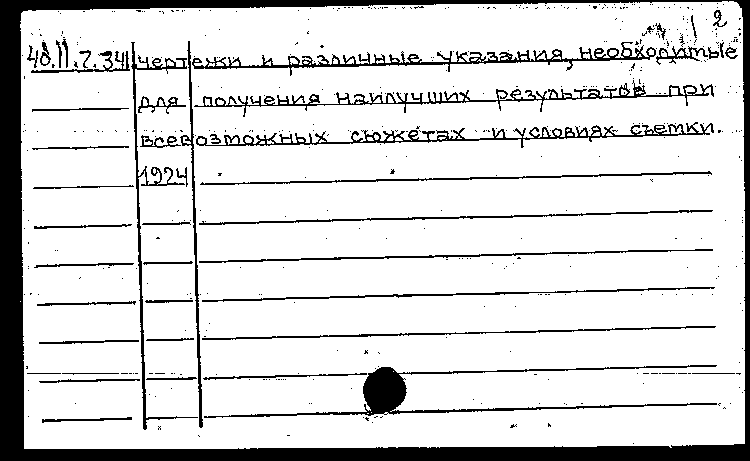 2
48.II.2.34 чертежи и различные указания, необходимые
для получения наилучших результатов при
всевозможных сюжетах и условиях съемки.
1924